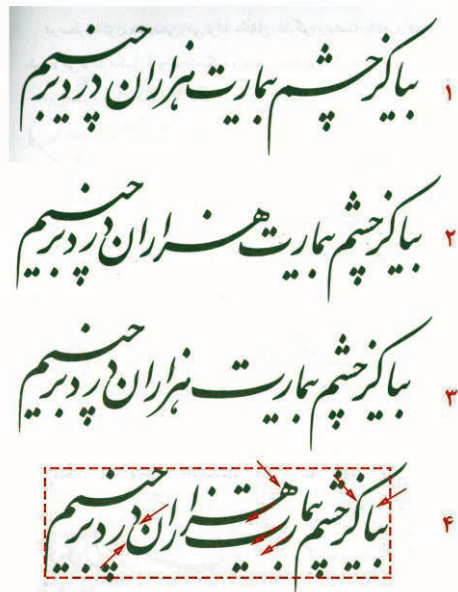 بیا کز چشم بیمارت هزاران درد برچینیم ۱
بیا کز چشم بیمارت هزاران درد برچینیم ۲
بیا کز چشم بیمارت هزاران درد برچینیم ۳
بیا کز چشم بیمارت هزاران درد برچینیم ۴